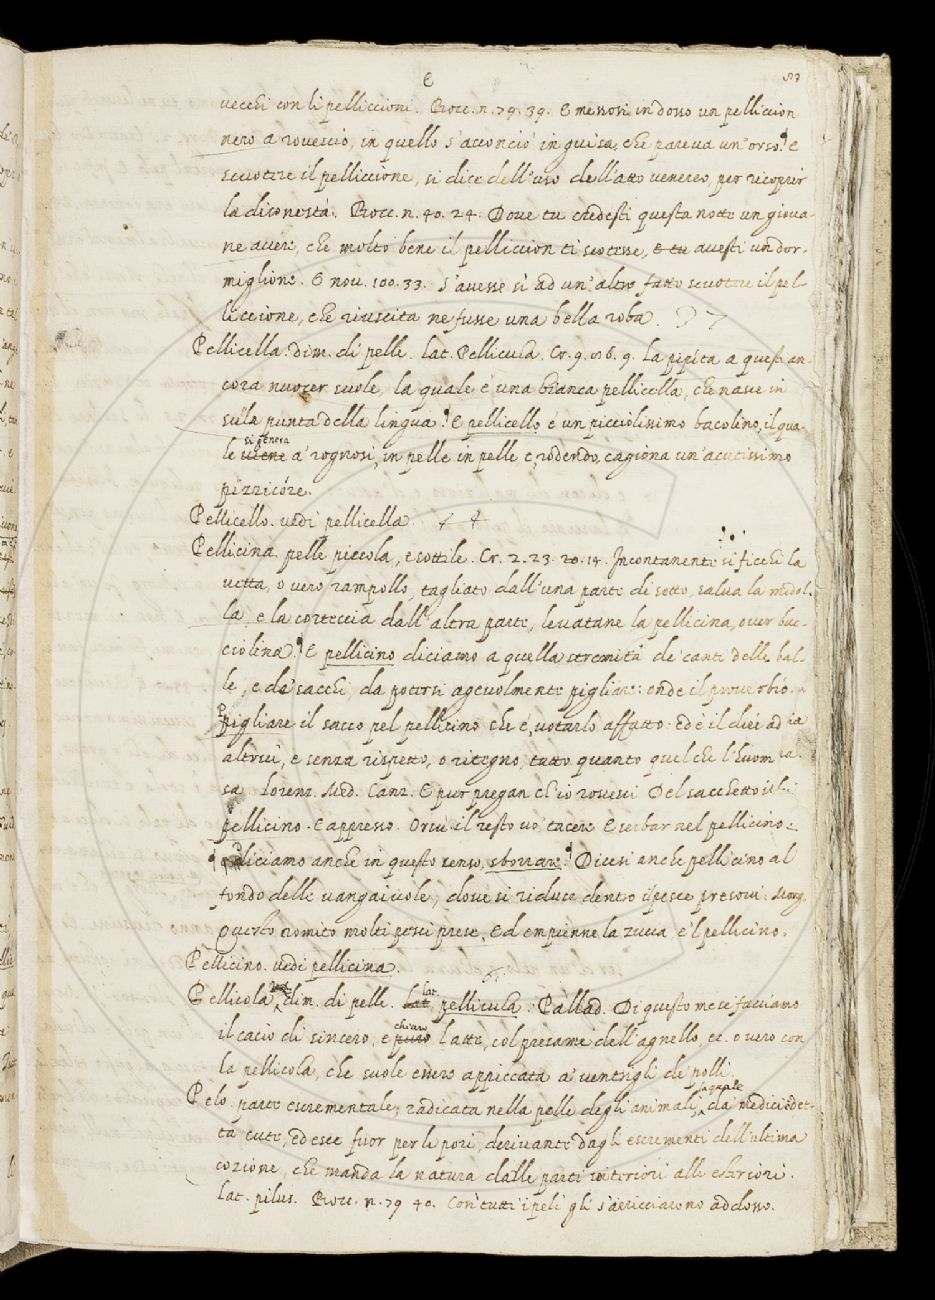 E 87
uecchi con li pelliccioni. Bocc. n. 79. 39. E messosi in dosso un pelliccion
nero a rouescio, in quello s'acconciò in guisa, che pareua un'orso. E
scuotere il pelliccione, si dice dell'uso dell'atto uenereo, per ricoprir
la disonestà. Bocc. n. 40. 24. Doue tu credesti questa notte un gioua-
ne auere, che molto bene il pelliccion ti scotesse, E tu auesti un dor-
miglione. E nou. 100. 33. S'auesse sì ad un'altro fatto scuotere il pel-
liccione, che riuscita ne fusse una bella roba.
Pellicella. dim. di pelle. lat. Pellicula. Cr. 9. 86. 9. La pipita a questi an-
cora nuocer suole, la quale è una bianca pellicella, che nasce in
sulla punta della lingua. E pellicello è un picciolissimo bacolino, il qua-
si genera
le uiene a' rognosi, in pelle in pelle e, rodendo, cagiona un'acutissimo
pizzicóre.
Pellicello. uedi pellicella.
Pellicina. pelle piccola, e sottile. Cr. 2. 23. 20. 14. Incontanente si ficchi la
uetta, o uero rampollo, tagliato dall'una parte di sotto, salua la midol-
la, e la corteccia dall'altra parte, leuatane la pellicina, ouer buc-
ciolina. E pellicino diciamo a quella stremità de' canti delle bal-
le, e de' sacchi, da potersi ageuolmente pigliare: onde il prouerbio.
pigliare il sacco pel pellicino che è, uotarlo affatto: ed è il dir ad
altrui, e senza rispetto, o ritegno, tutto quanto quel che l'huom
sa. Lorenz. Med. Canz. E pur pregan ch'io rouesci Del sacchetto il
pellicino. E appresso. Orsù il resto uo' tacere E serbar nel pellicino.
diciamo anche in questo senso, sborrare. Dicesi anche pellicino al
fondo delle uangaiuole, doue si riduce dentro il pesce preso: Morg.
Questo romito molti pesci prese, Ed empienne la zucca, e 'l pellicino.
Pellicino. uedi pellicina.
lat.
Pellicola dim. di pelle. lat. pellicula. Pallad. Di questo mese facciamo
chiaro
il cacio di sincero, e puro latte, col presame dell'agnello, ec. o uero con
la pellicola, che suole essere appiccata a' uentrigli de' polli.
la quale
Pelo. parte escrementale, radicata nella pelle degli animali, da' medici è det-
ta cute, ed esce fuor per li pori, deriuante dagli escrementi dell'ultima
cozione, che manda la natura dalle parti interiori alle esteriori.
lat. pilus. Bocc. n. 79 40. Con tutti i peli gli s'arricciarono addosso.